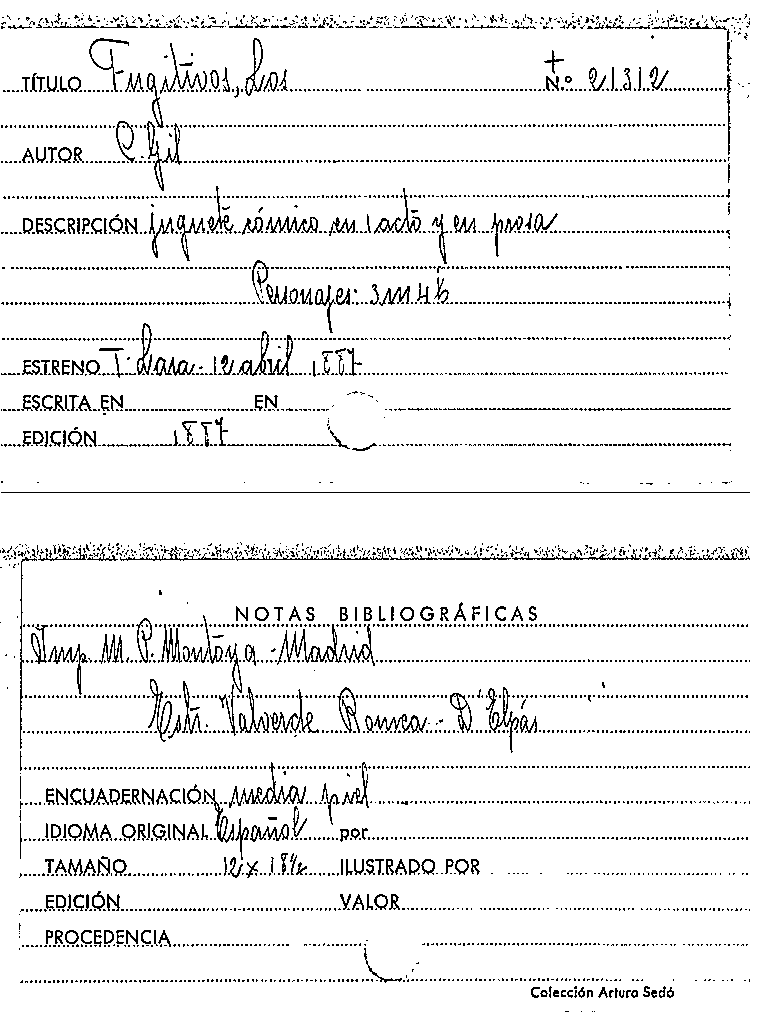 TÍTULO Fugitivos, Los N.º 21312
AUTOR C. Gil
DESCRIPCIÓN juguete cómico en 1 acto y en prosa
Personajes: 3 m 4 h
ESTRENO T. Lara - 12 abril 1887
ESCRITA EN EN
EDICIÓN 1887
NOTAS BIBLIOGRÁFICAS
Imp M. P. Montoya - Madrid
Estr. Valverde Romea - D' Elpás
ENCUADERNACIÓN media piel
IDIOMA ORIGINAL Español por
TAMAÑO 12 x 18½ ILUSTRADO POR
EDICIÓN VALOR
PROCEDENCIA
Colección Arturo Sedó